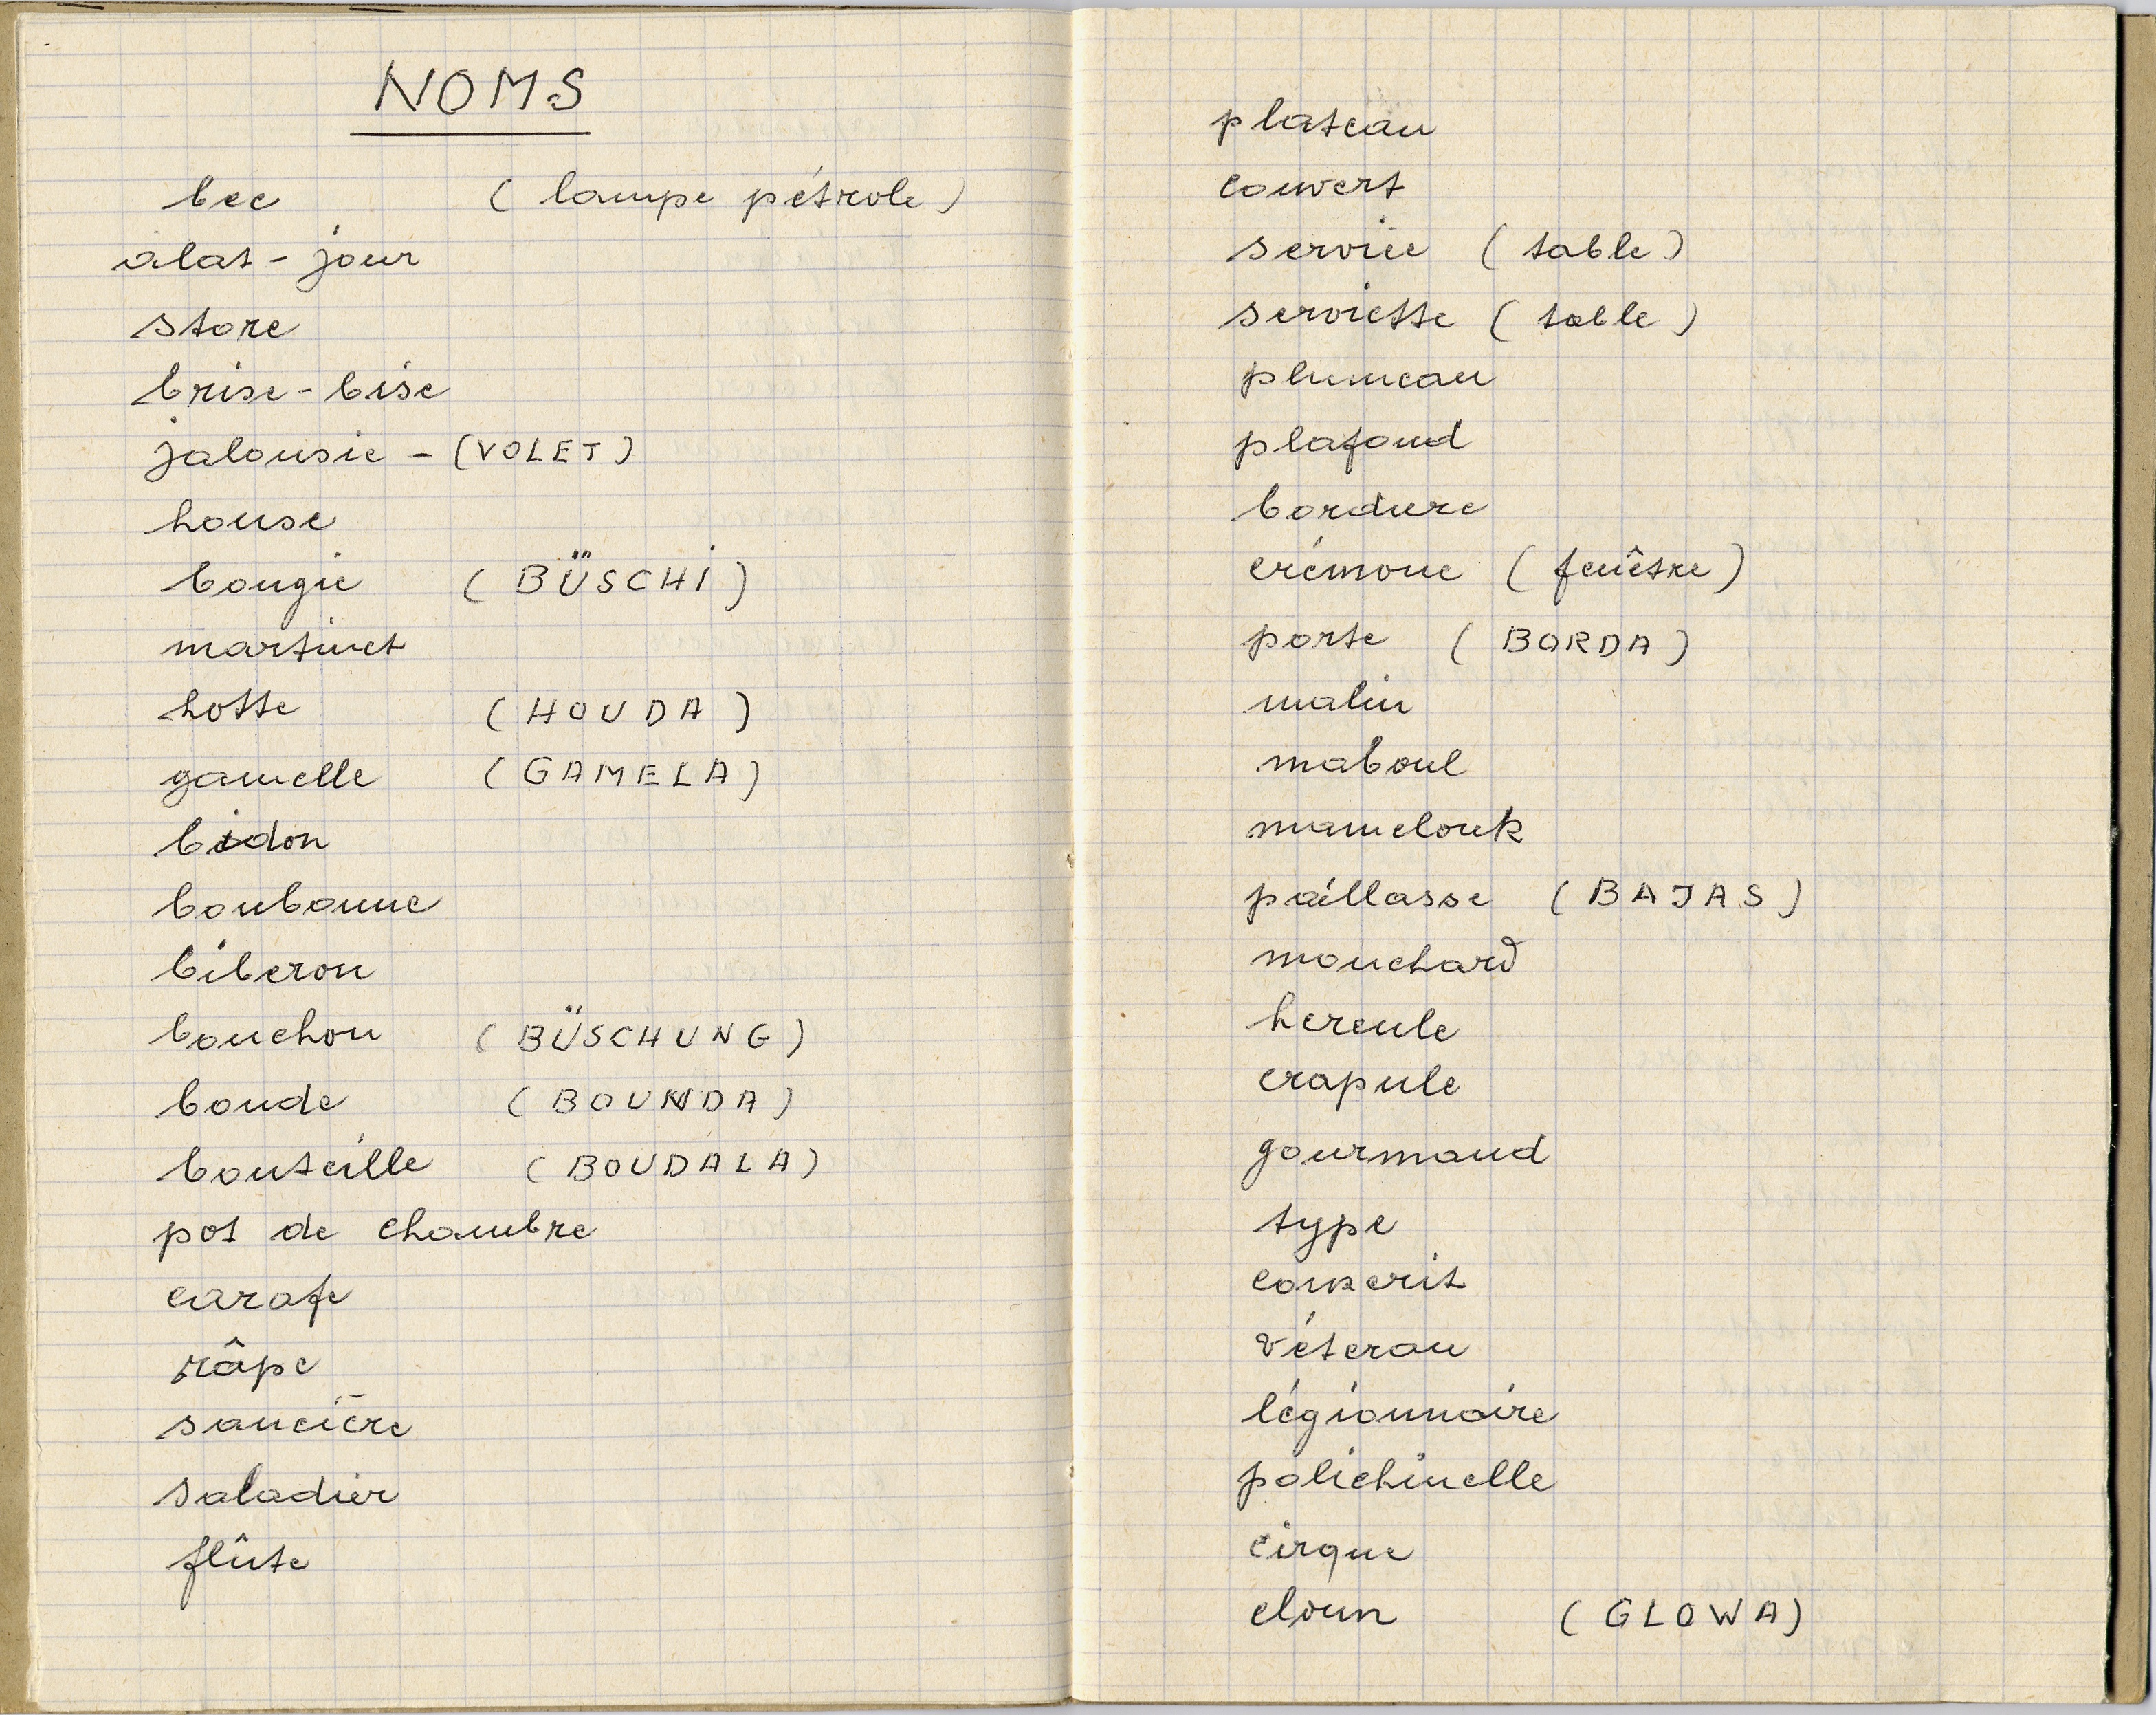 NOMS
bec ( lampe pétrole )
abat - jour
store
brise - bise
jalousie - (VOLET)
house
bougie ( BÜSCHI )
martinet
hotte ( HOUDA )
gamelle ( GAMELA )
bidon
bonbonne
biberon
bouchon ( BÜSCHUNG )
bonde ( BOUNDA )
bouteille ( BOUDALA )
pot de chambre
carafe
râpe
saucière
saladier
flûte
plateau
couvert
service ( table )
serviette ( table )
plumeau
plafond
bordure
crémone ( fenêtre )
porte ( BORDA )
malin
maboul
mamelouk
paillasse ( BAJAS )
mouchard
hercule
crapule
gourmand
type
conscrit
vétéran
légionnaire
polichinelle
cirque
cloun ( GLOWA )